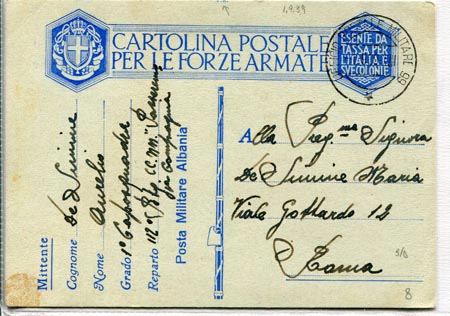 1.9.39
CARTOLINA POSTALE
PER LE FORZE ARMATE
ESENTE DA
TASSA PER
L'ITALIA E
SVE COLONIE
MILITARE
66
Mittente
Cognome De Simine
Nome Aurelio
Grado 1° Caposquadra
Reparto 112° Btg CC.NN.
Posta Militare Albania
Alla Preg.ma Signora
De Simine Maria
Viale Gottardo 12
Roma
8